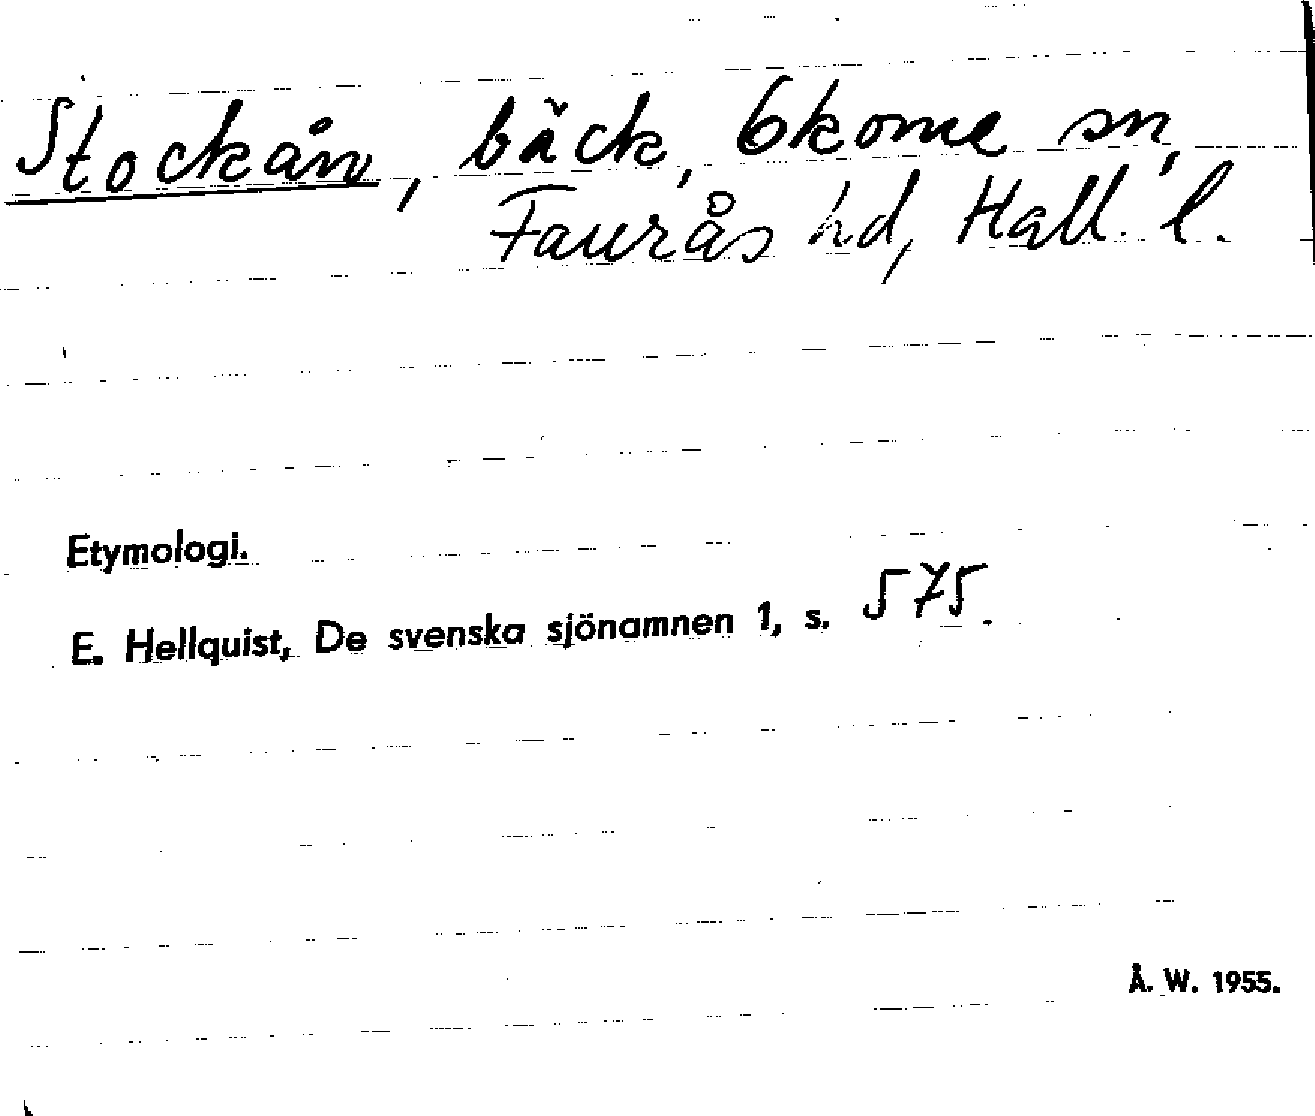 Stockån, bäck, Okome sn,
Faurås hd, Hall. l.
Etymologi.
E. Hellquist, De svenska sjönamnen 1, s. 575.
Å. W. 1955.